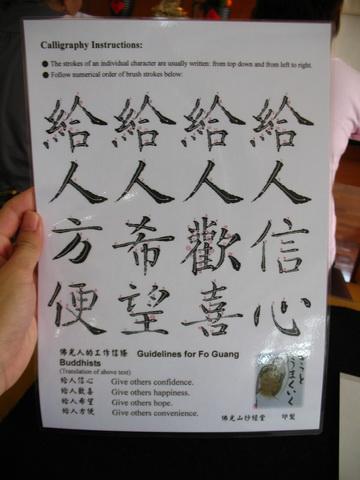 Calligraphy Instructions:
● The strokes of an individual character are usually written: from top down and from left to right.
● Follow numerical order of brush strokes below:
給人信心
給人歡喜
給人希望
給人方便
佛光人的工作信條 Guidelines for Fo Guang
Buddhists
(Translation of above text)
給人信心 Give others confidence.
給人歡喜 Give others happiness.
給人希望 Give others hope.
給人方便 Give others convenience.
うまくいく
佛光山抄經堂 印製